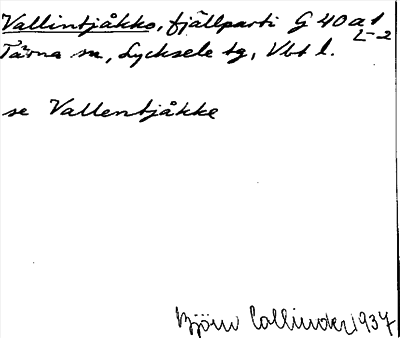 Vallintjåkko, fjällparti G 40 a 1
L-2
Tärna sn, Lycksele tg, Vbt l.
se Vallentjåkke
Björn Collinder 1937